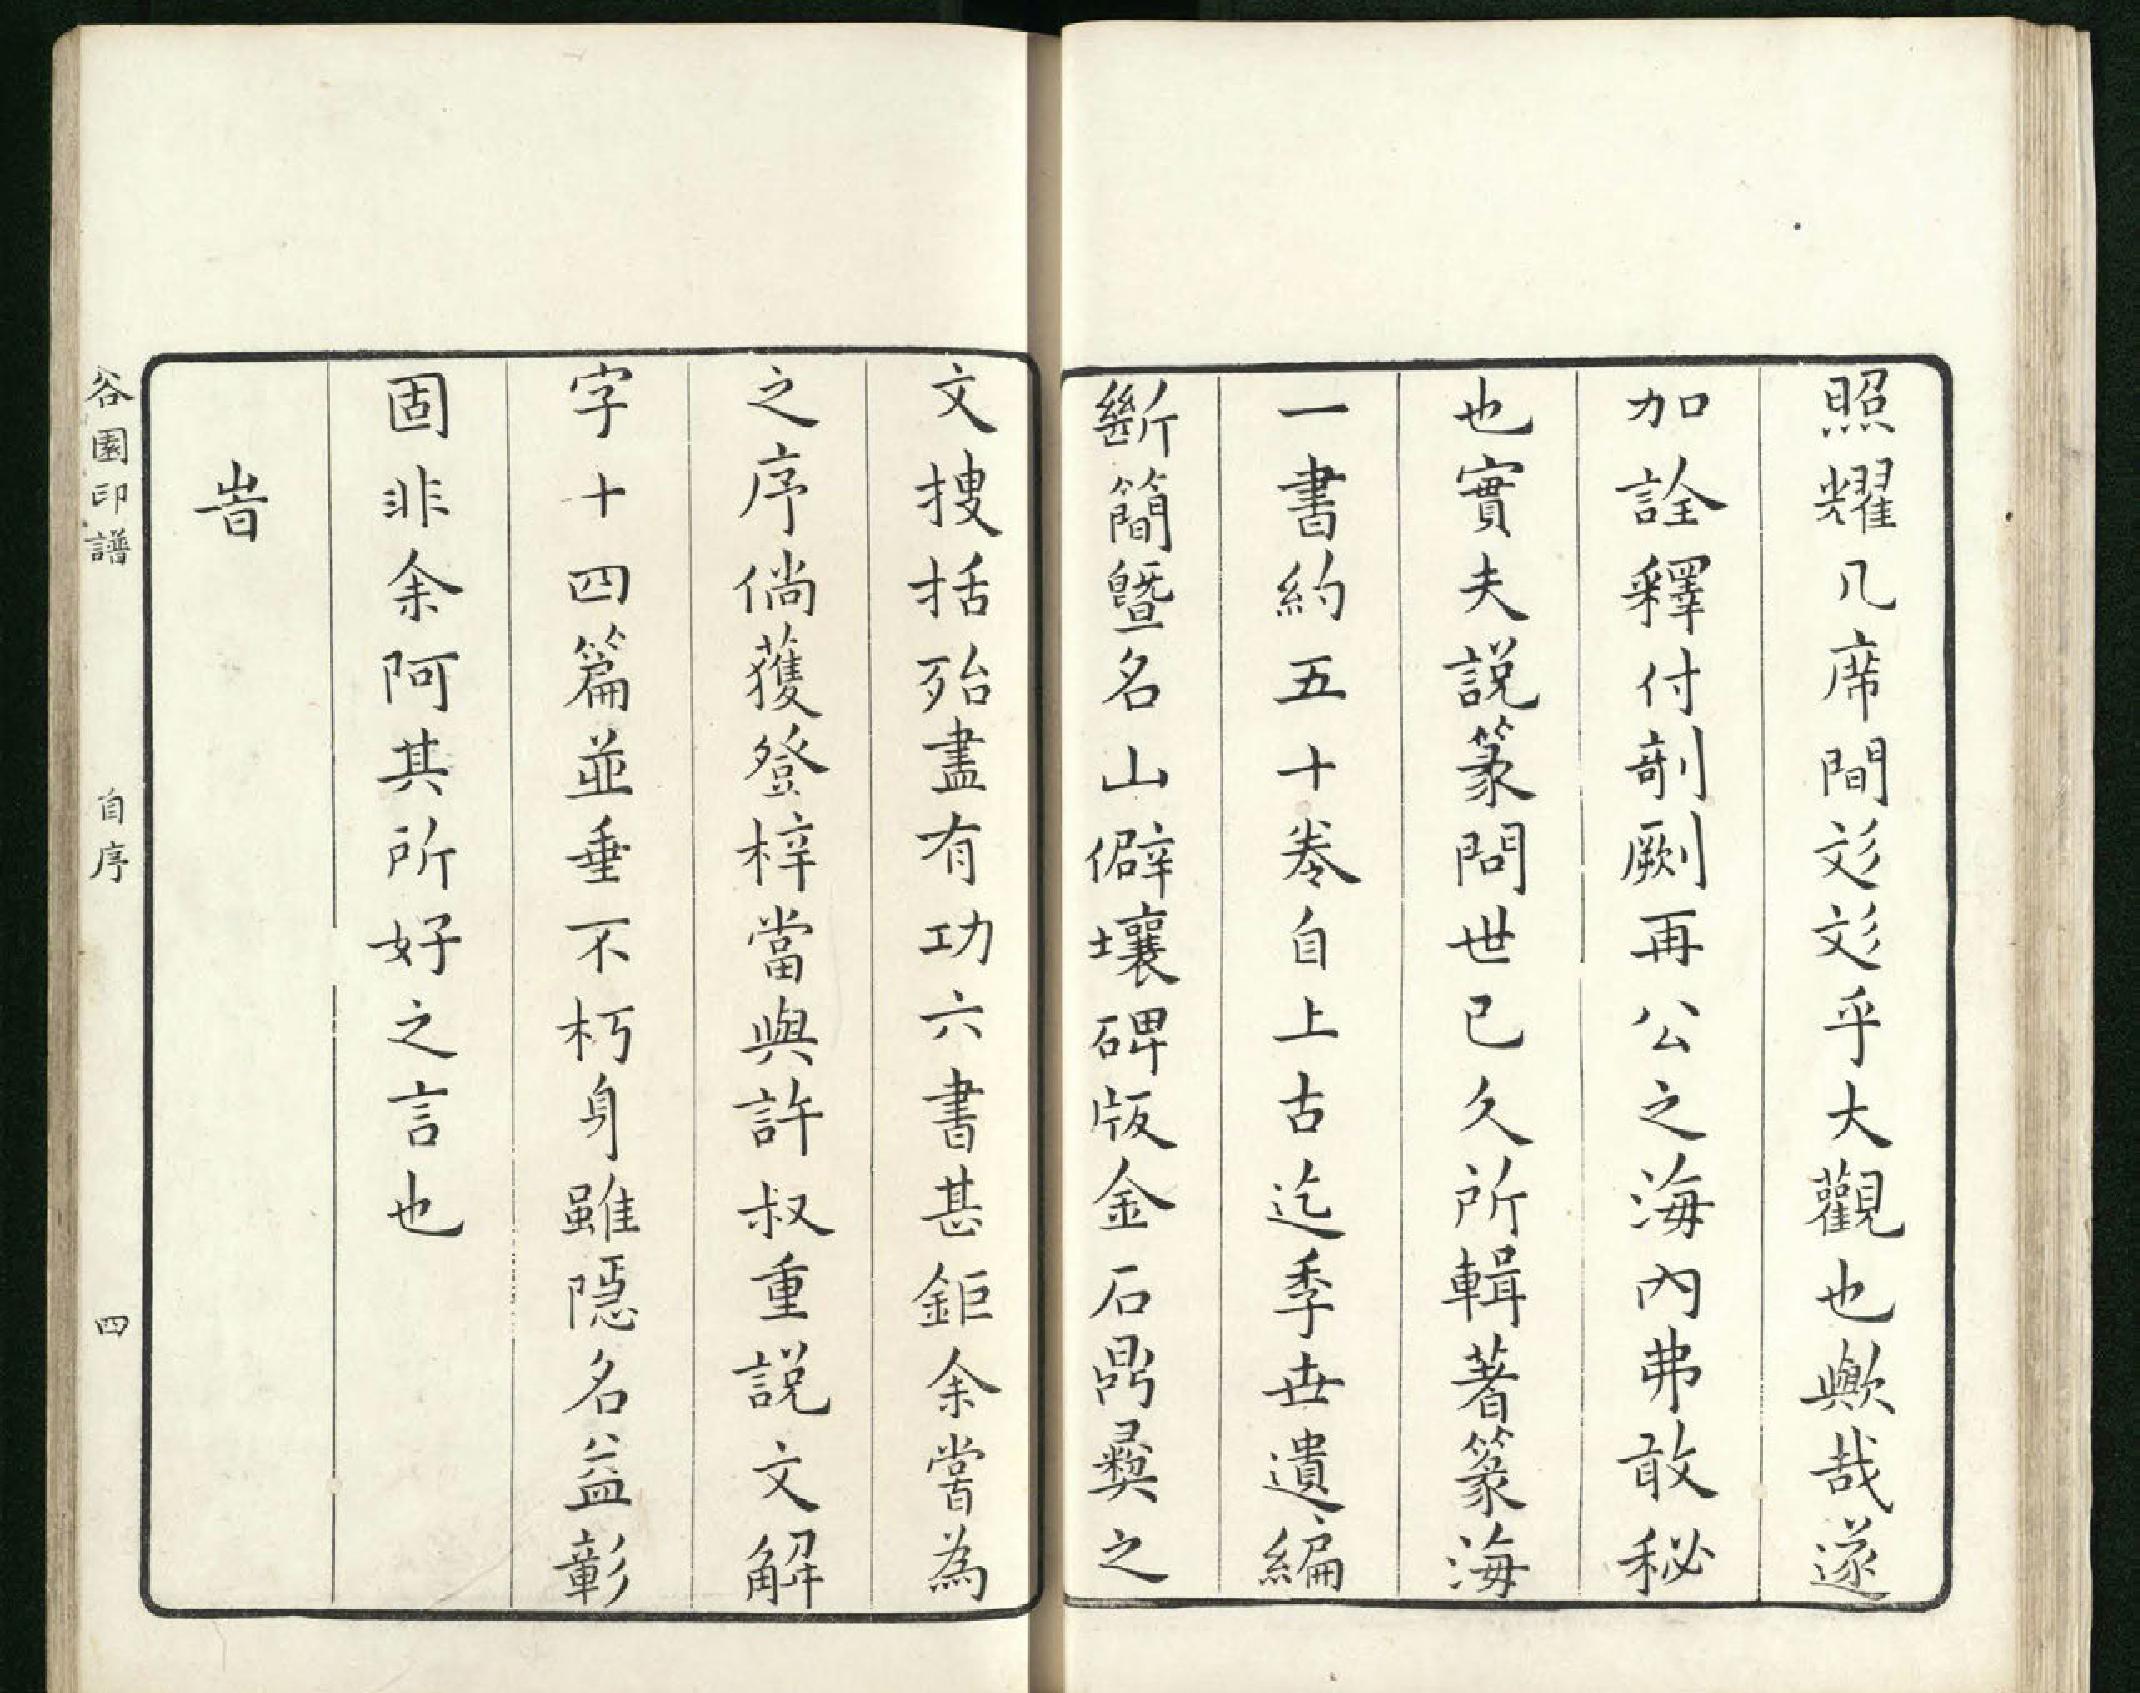 照耀几席間彣彣乎大觀也歟哉遂
加詮釋付剞劂再公之海內弗敢秘
也實夫說篆問世已久所輯著篆海
一書約五十卷自上古迄季世遺編
斷簡暨名山僻壤碑版金石鼎彝之
文搜括殆盡有功六書甚鉅余嘗為
之序倘獲登梓當與許叔重說文解
字十四篇並垂不朽身雖隱名益彰
固非余阿其所好之言也
旹
谷園印譜 自序 四